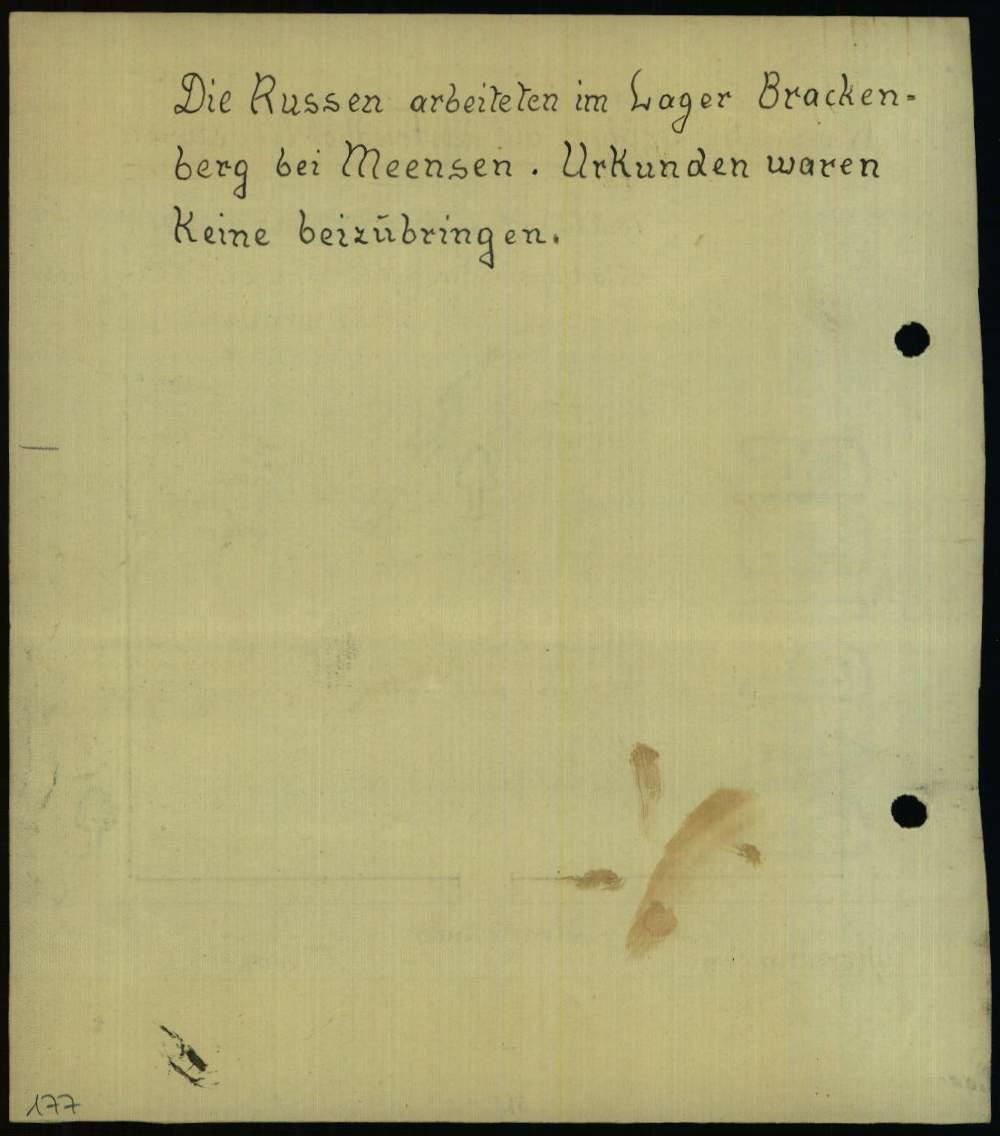 Die Russen arbeiteten im Lager Bracken-
berg bei Meensen. Urkunden waren
Keine beizubringen.
177